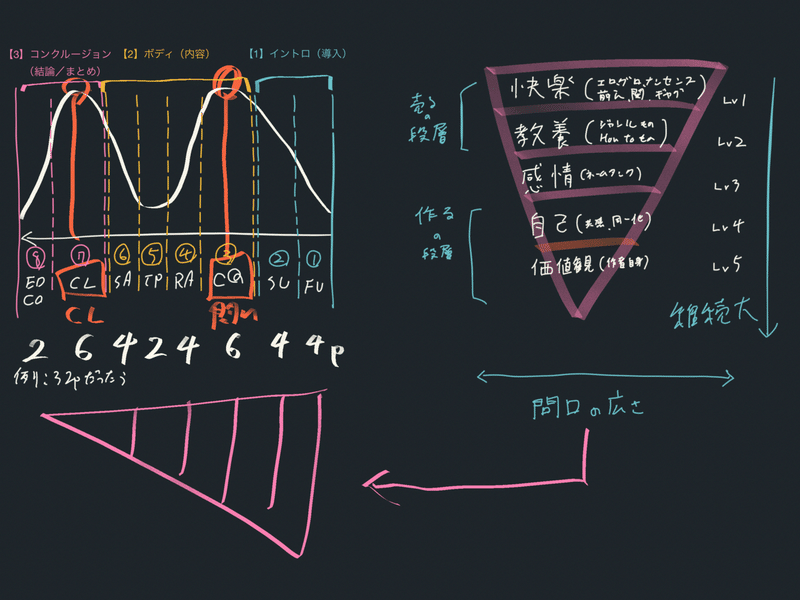 【3】コンクルージョン
（結論／まとめ）
【2】ボディ（内容）
【1】イントロ（導入）
⑧ ⑦ ⑥ ⑤ ④ ③ ② ①
ED CL SA TP RA CQ SU FU
CO
CL 問い
2 6 4 2 4 6 4 4p
例）：32pだったら
売るの段層
作るの段層
快楽（エログロナンセンス
萌え、関、ギャグ）
Lv1
教養（ジャンルもの
How toもの）
Lv2
感情（ホームランク）
Lv3
自己（共感、同一化）
Lv4
価値観（作者自身）
Lv5
継続大
間口の広さ